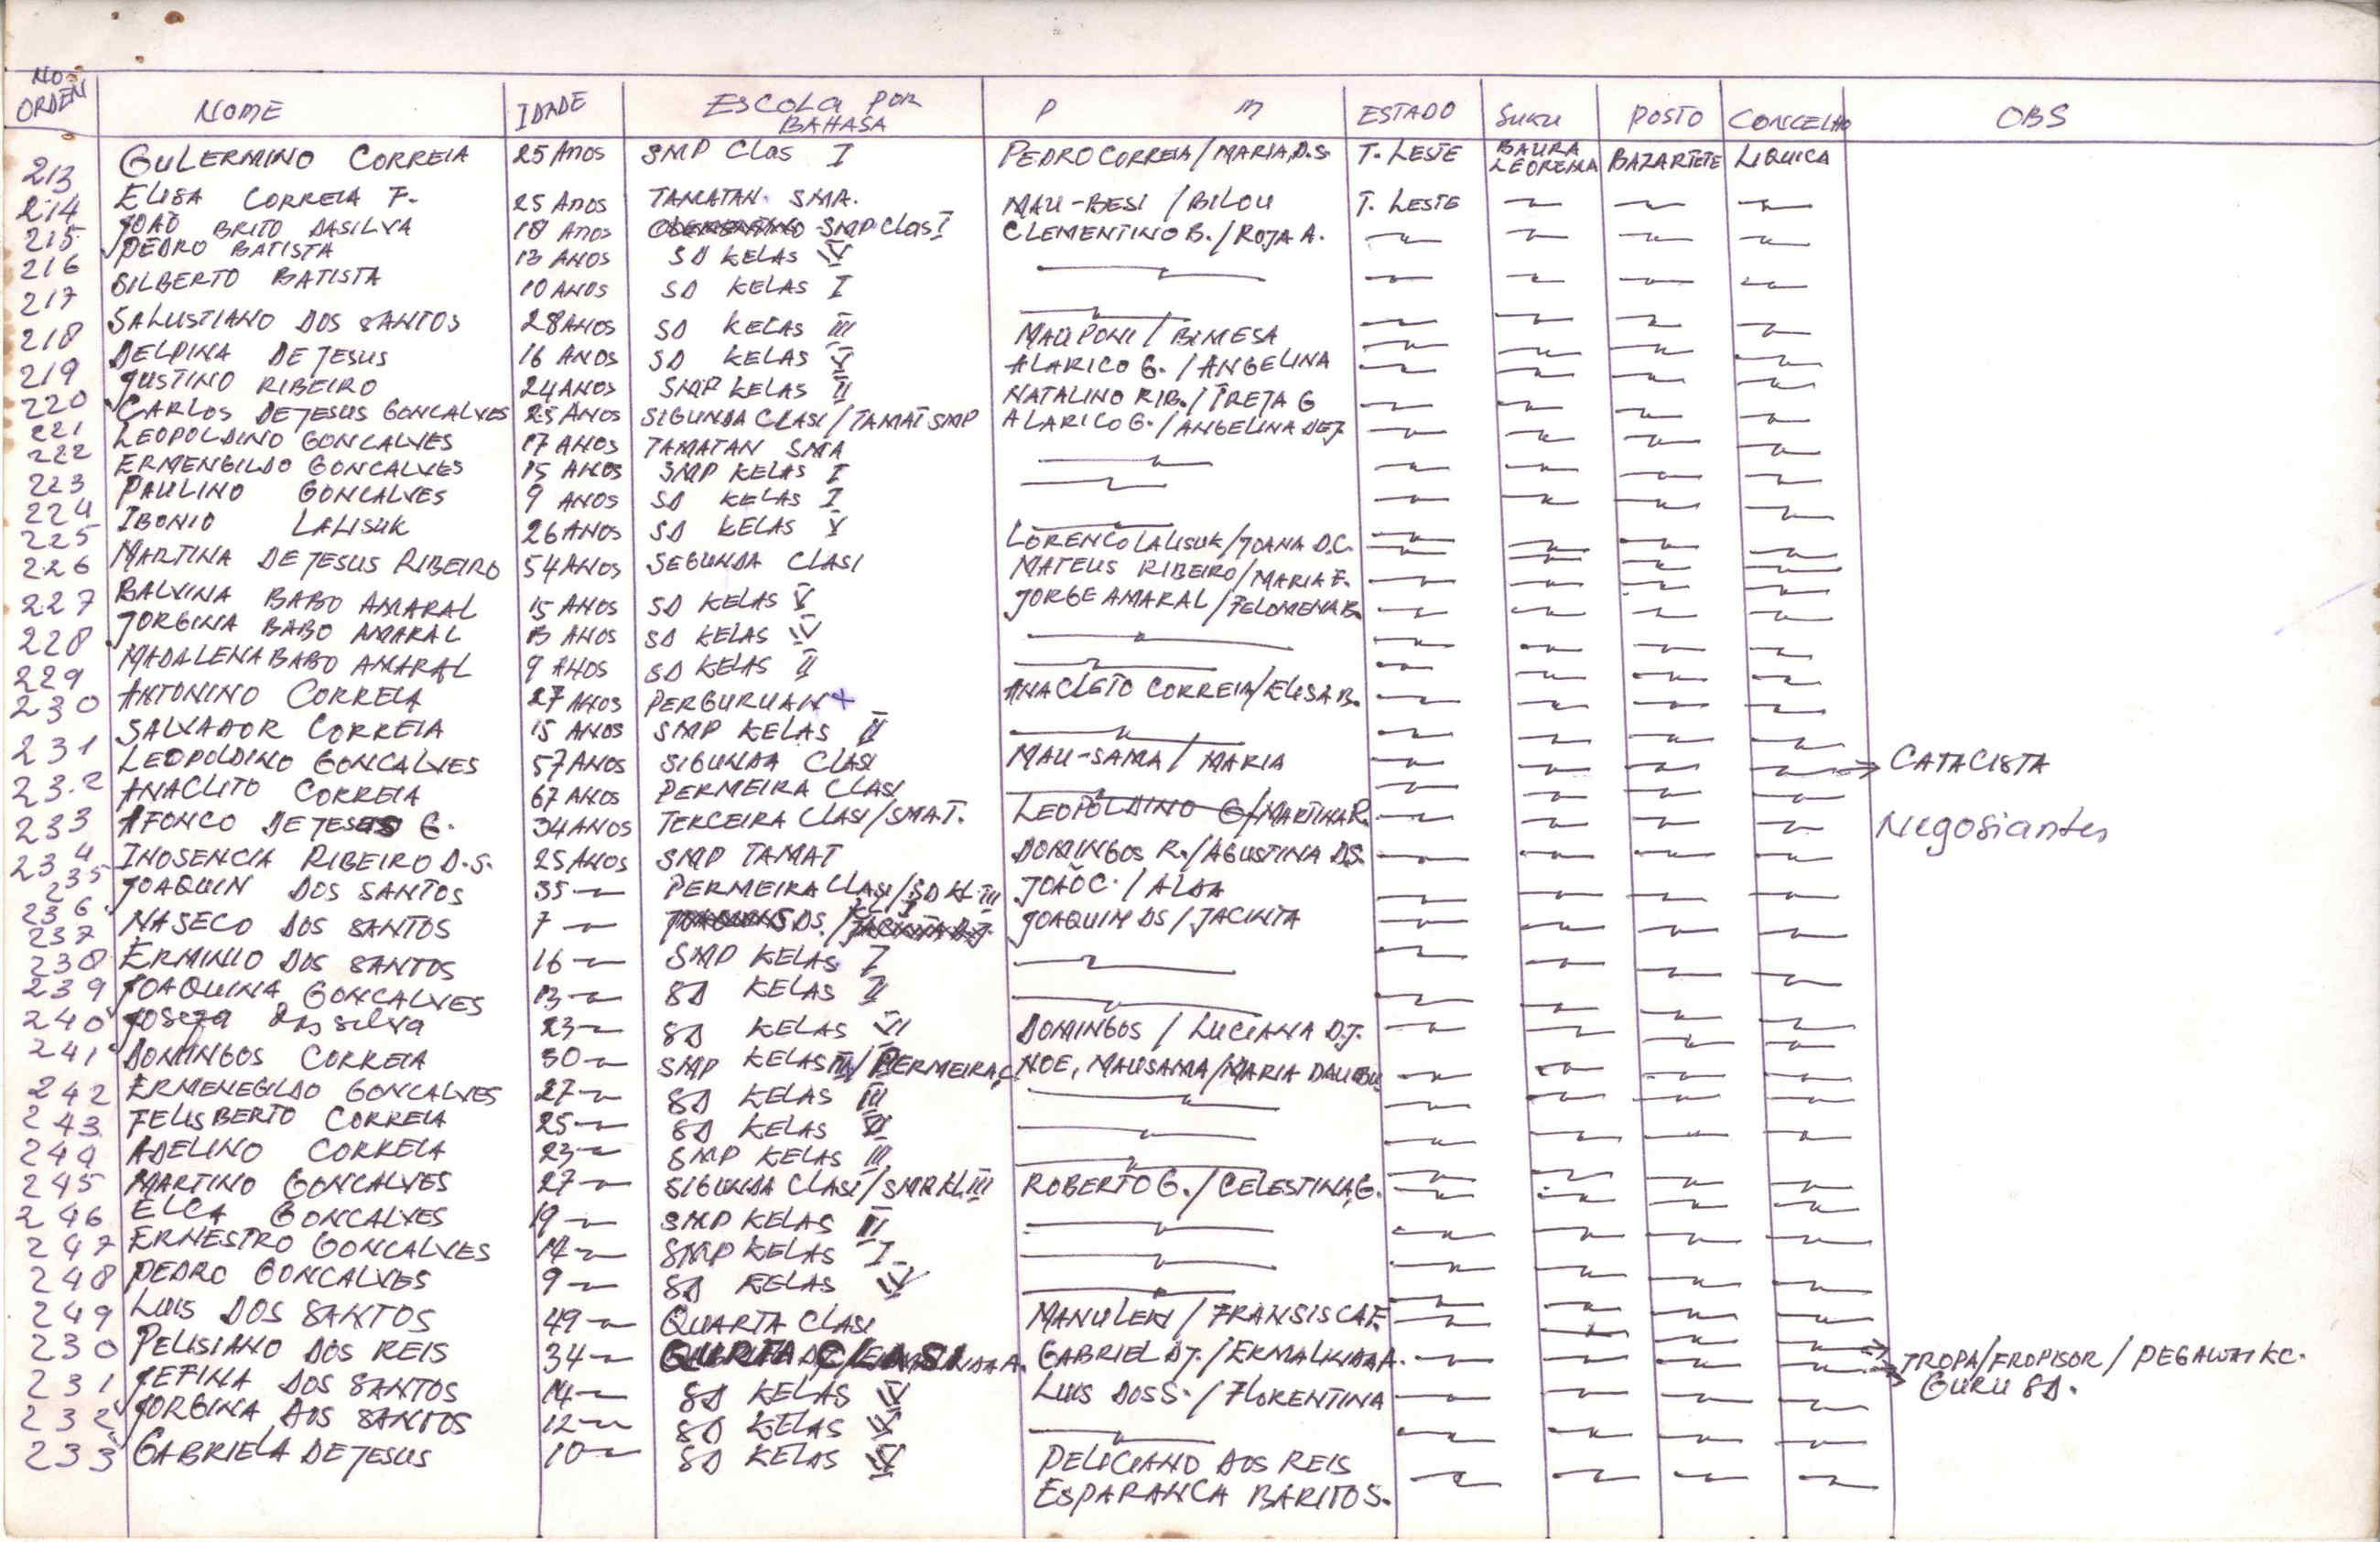 NO ORDEN NOME IDADE ESCOLA POR BAHASA P M ESTADO SUKU POSTO CONCELHO OBS
213 GULERMINO CORREIA 25 ANOS SMP CLAS I PEDRO CORREIA / MARIA D.S. T. LESTE BAURA LEOREMA BAZARTETE LIQUICA
214 ELISA CORREIA F. 25 ANOS TAMATAN. SMA. MAU-BESI / BILOU T. LESTE
215 JOAO BRITO DASILVA 18 ANOS SMP CLAS I CLEMENTINO B. / ROJA A.
216 PEDRO BATISTA 13 ANOS SD KELAS IV
217 SILBERTO BATISTA 10 ANOS SD KELAS I
218 SALUSTIANO DOS SANTOS 28 ANOS SD KELAS III MAUPONI / BIMESA
219 DELPINA DE JESUS 16 ANOS SD KELAS V ALARICO G. / ANGELINA
220 JUSTINO RIBEIRO 24 ANOS SMP KELAS II NATALINO RIB. / IRETA G
221 CARLOS DE JESUS GONCALVES 25 ANOS SIGUNDA CLASI / TAMAT SMP ALARICO G. / ANGELINA DE J.
222 LEOPOLDINO GONCALVES 17 ANOS TAMATAN SMA
223 ERMENGILDO GONCALVES 15 ANOS SMP KELAS I
224 PAULINO GONCALVES 9 ANOS SD KELAS I
225 IBONIO LALISUK 26 ANOS SD KELAS V LORENCO LALISUK / JOANA D.C.
226 MARTINA DE JESUS RIBEIRO 54 ANOS SEGUNDA CLASI MATEUS RIBEIRO / MARIA F.
227 BALVINA BABO AMARAL 15 ANOS SD KELAS V JORGE AMARAL / FELOMENA B.
228 JORGINA BABO AMARAL 13 ANOS SD KELAS IV
229 MADALENA BABO AMARAL 9 ANOS SD KELAS II
230 ANTONINO CORREIA 27 ANOS PERGURUAN + ANACLETO CORREIA / ELISA B.
231 SALVADOR CORREIA 15 ANOS SMP KELAS II
23.2 LEOPOLDINO GONCALVES 57 ANOS SIGUNDA CLASI MAU-SAMA / MARIA CATACISTA
233 ANACLITO CORREIA 67 ANOS PERMEIRA CLASI
234 AFONCO DE JESUS G. 34 ANOS TERCEIRA CLASI / SMA T. LEOPOLDINO G / MARTINA R. Negosiantes
235 INOSENCIA RIBEIRO D.S. 25 ANOS SMP TAMAT DOMINGOS R. / AGUSTINA D.S.
236 JOAQUIN DOS SANTOS 35 PERMEIRA CLASI / SD KL. III JOAÕ C. / ALDA
237 NASECO DOS SANTOS 7 JOAQUIM DS / JACINTA
238 ERMINIO DOS SANTOS 16 SMP KELAS I
239 JOAQUINA GONCALVES 13 SD KELAS II
240 JOSEFA das silva 23 SD KELAS VI DOMINGOS / LUCIANA D.J.
241 DOMINGOS CORREIA 30 SMP KELAS III / PERMEIRA C NOE, MAUSAMA / MARIA
242 ERMENEGILDO GONCALVES 27 SD KELAS III
243 FELISBERTO CORREIA 25 SD KELAS VI
244 ADELINO CORREIA 23 SMP KELAS III
245 MARTINO GONCALVES 27 SIGUNDA CLASI / SMP KL. III ROBERTO G. / CELESTINA G.
246 ELCA GONCALVES 19 SMP KELAS II
247 ERNESTRO GONCALVES 14 SMP KELAS I
248 PEDRO GONCALVES 9 SD KELAS IV
249 LUIS DOS SANTOS 49 QUARTA CLASI MANULEKI / FRANSISCA F.
230 PELISIANO DOS REIS 34 QURTA CLASI GABRIEL DJ. / ERMALINDA A. TROPA / FROPISOR / PEGAWAI KC.
GURU SD.
231 JEFINA DOS SANTOS 14 SD KELAS IV LUIS DOS S. / FLORENTINA
232 JORGINA DOS SANTOS 12 SD KELAS
233 GABRIELA DE JESUS 10 SD KELAS PELICIANO DOS REIS
ESPARANCA BARITOS.